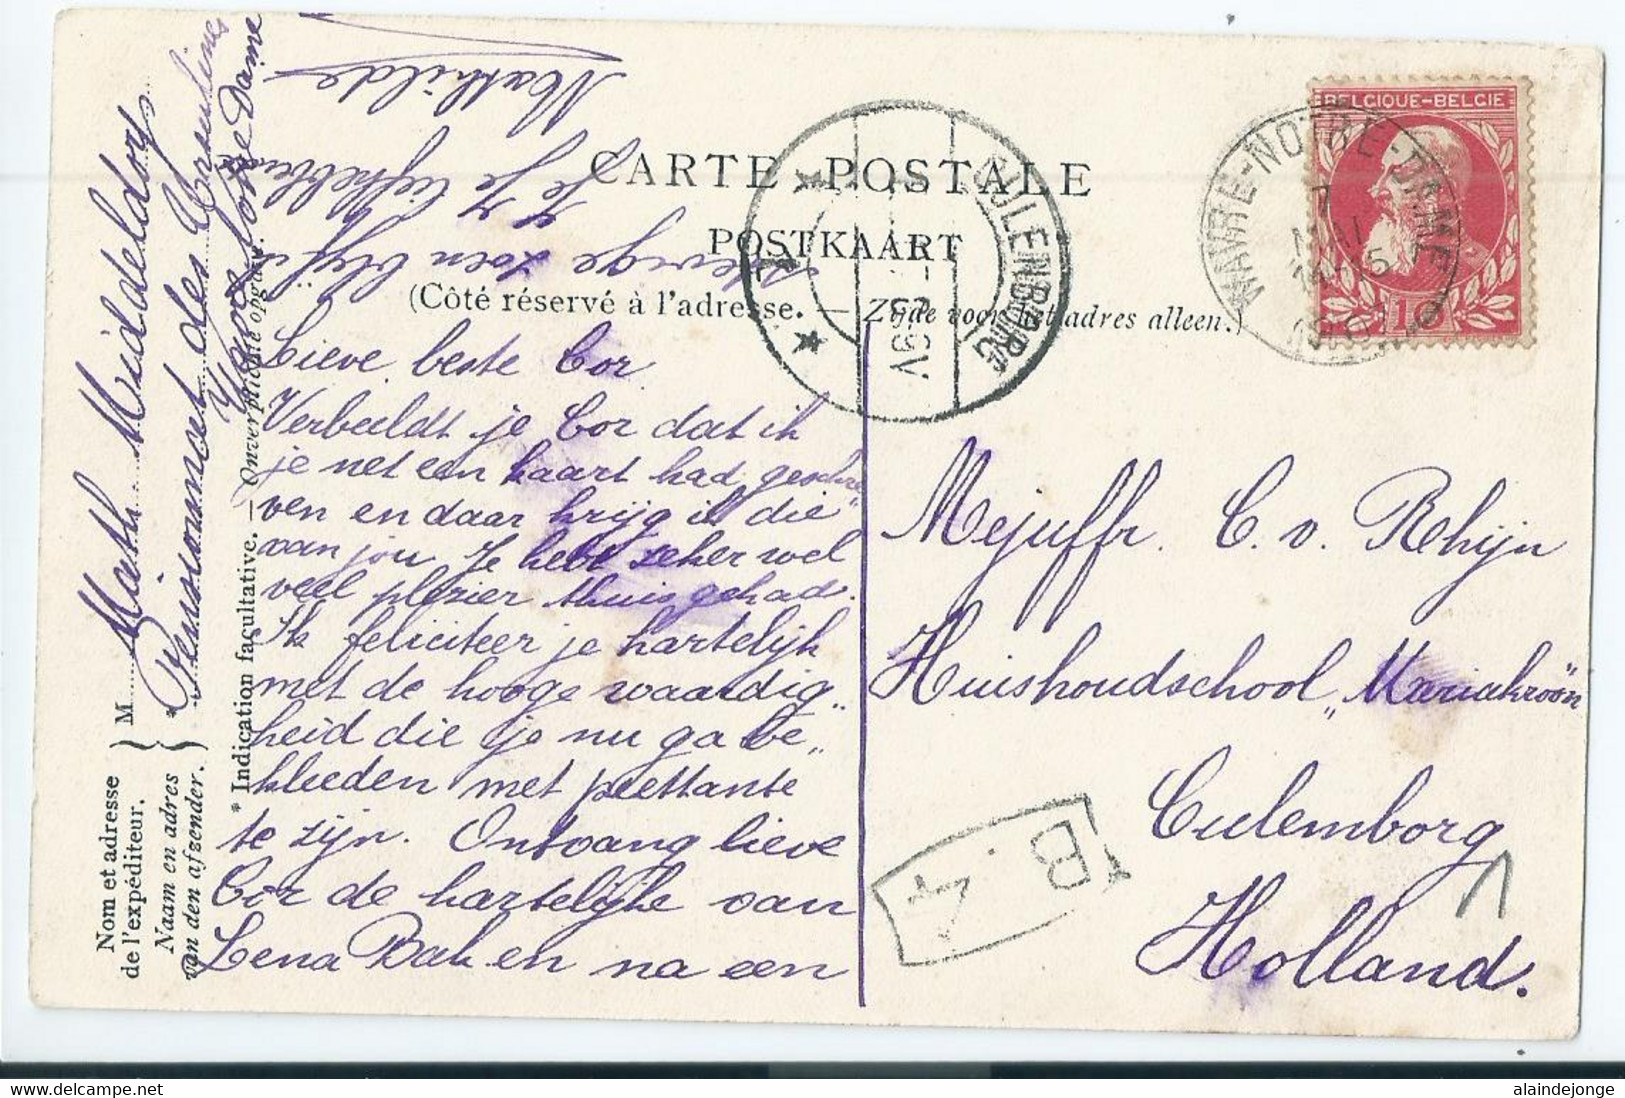 CARTE POSTALE
POSTKAART
(Côté réservé à l'adresse. — Zijde voor het adres alleen.)
BELGIQUE-BELGIE
10
WAVRE-NOTRE-DAME
7
MAI
14-15
190
CUILENBURG
Lieve beste Cor
Verbeeldt je Cor dat ik
je net een kaart had geschre„
ven en daar krijg ik die
van jou. Je hebt zeker wel
veel plezier thuis gehad.
Ik feliciteer je hartelijk
met de hooge waardig„
heid die je nu ga be„
kleeden met peettante
te zijn. Ontvang lieve
Cor de hartelijke van
Lena Bak en na een
stevige zoen blijf ik
Je Je liefhebbende
Mathilde
Mejuffr. C. v. Rhijn
Huishoudschool „Mariakröön
Culemborg
Holland.
B.
4
1
Nom et adresse
de l'expéditeur.
Naam en adres
van den afzender.
M
*
Math Middeldorp
Pensionnat des Ursulines
Wavre Notre Dame
* Indication facultative. — Onverplichte opgave.
alaindejonge